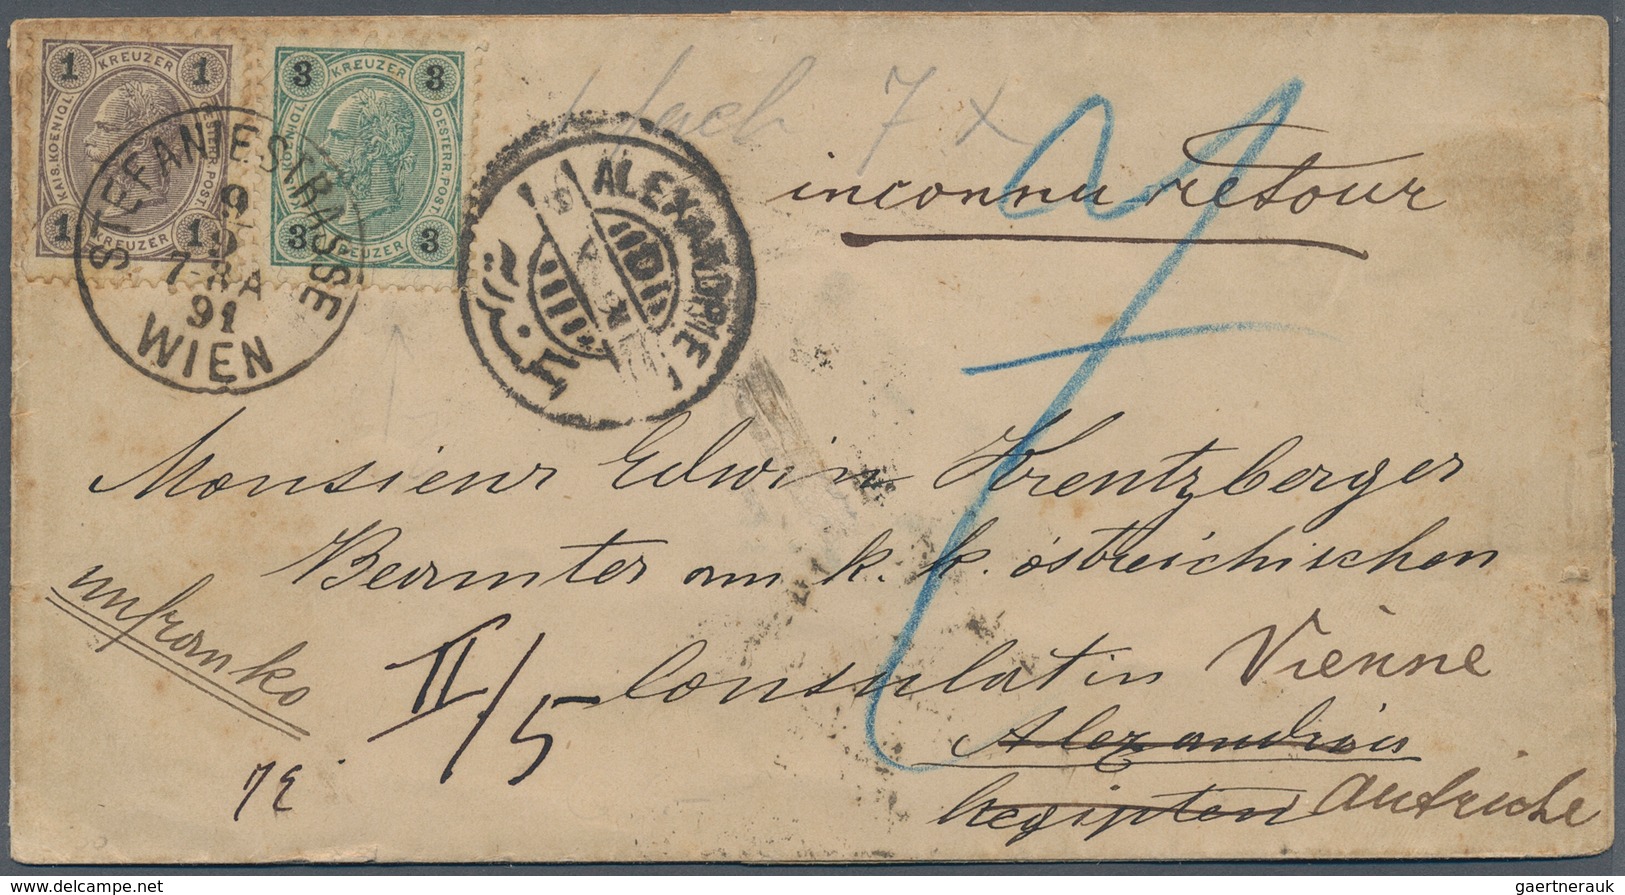 1 KREUZER 1
KAIS. KOENIGL. OESTERR. POST.
1 KREUZER 1
3 KREUZER 3
KAIS. KOENIGL. OESTERR. POST.
3 KREUZER 3
STEFANIESTRASSE
9
9
91
WIEN
ALEXANDRIE
7 x
inconnu retour
Monsieur Edwin Krentzberger
Beamter am k. k. östreichischen
unfranko
II/5 Consulat in Vienne
Alexandrien
Aegipten Autriche
gaertnerauk